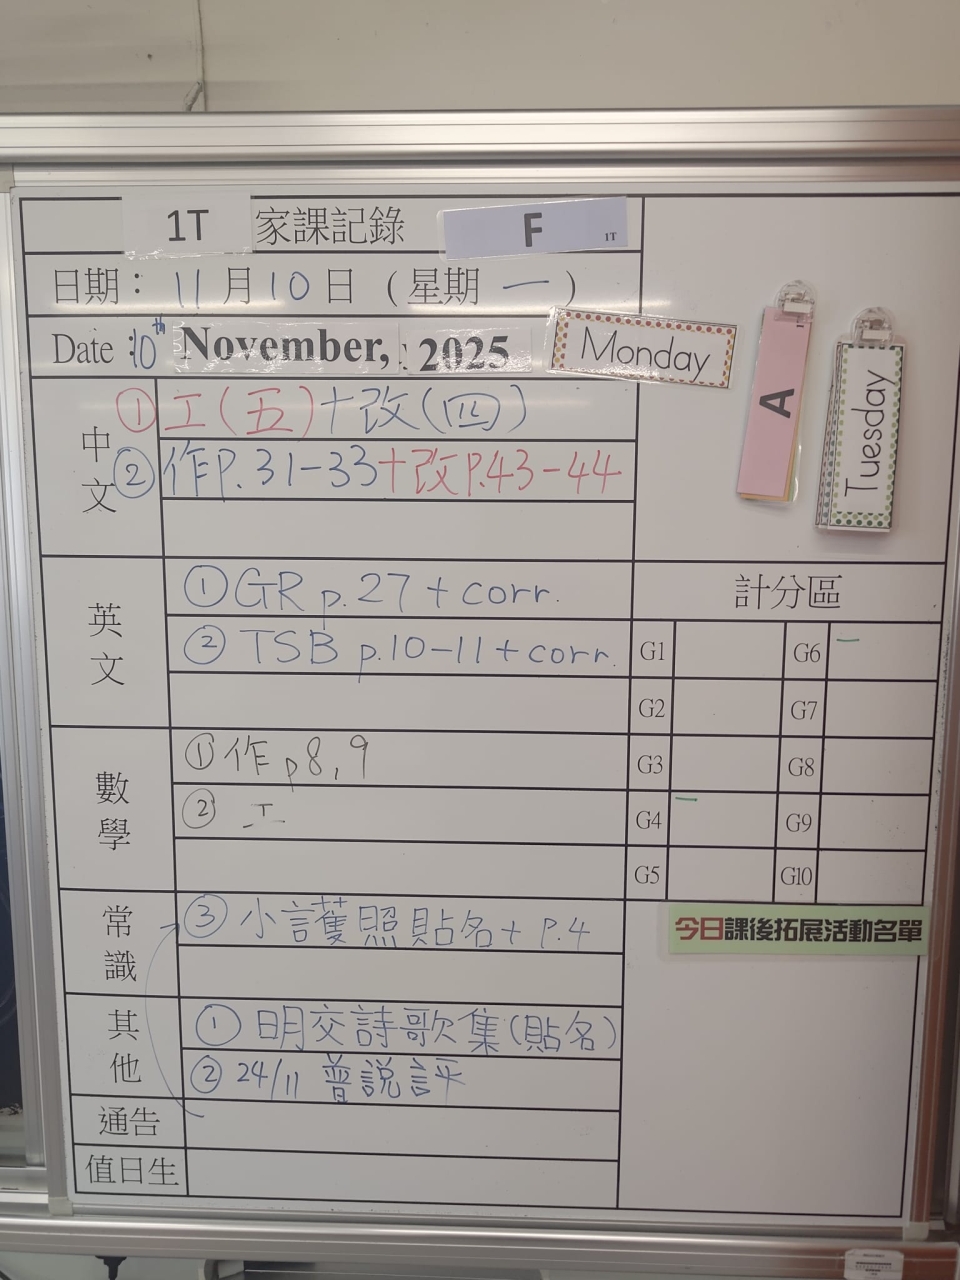 1T 家課記錄 F 1T
日期： 11 月 10 日 (星期 一 )
Date : 10th November, 2025 Monday
A
Tuesday
中文
① 工(五)+改(四)
② 作P.31-33+改P.43-44
英文
① GR p.27 + corr.
② TSB p.10-11 + corr.
計分區
G1 G6 一
G2 G7
G3 G8
G4 一 G9
G5 G10
數學
① 作 p8,9
② 工
常識
③ 小護照貼名+ P.4
今日課後拓展活動名單
其他
① 明交詩歌集(貼名)
② 24/11 普說評
通告
值日生